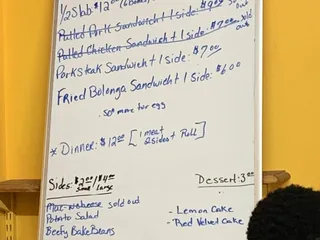 1/2 Slab $12.00 (6 Bones)
Pulled Pork Sandwich + 1 side: $9.00 sold out
Pulled Chicken Sandwich + 1 side: $7.00 sold out
Porksteak Sandwich + 1 side: $7.00
Fried Bolonga Sandwich + 1 side: $6.00
50¢ more for egg
* Dinner: $12.00 [1 meat 2 sides + Roll]
Sides: $2.00/$4.00
small/large
Mac-n-cheese sold out
Potato Salad
Beefy Bake Beans
Dessert: 3.00
- Lemon Cake
- Red Velvet Cake